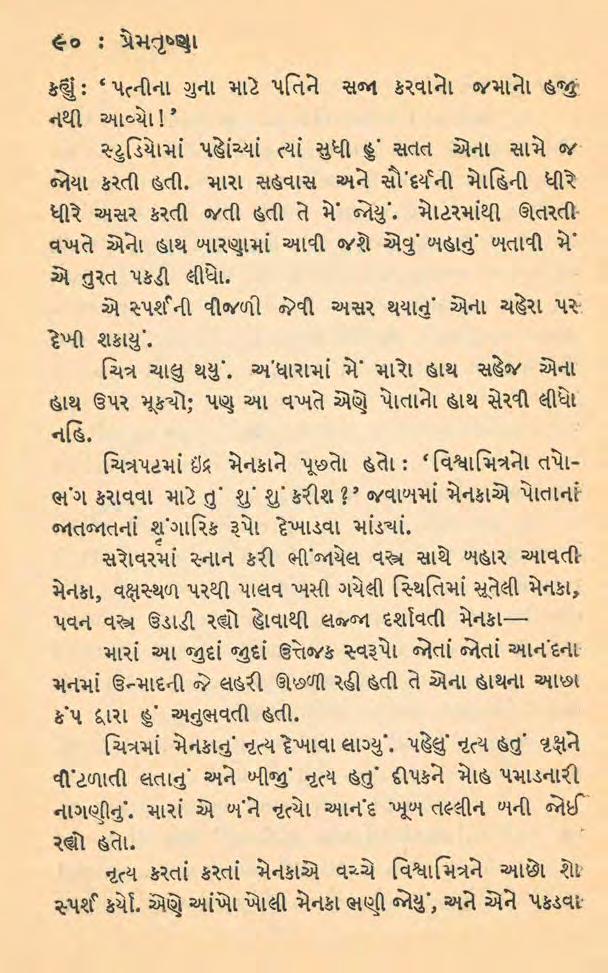 ૯૦ : પ્રેમતૃષ્ણા
કહ્યું : ‘ પત્નીના ગુના માટે પતિને સજા કરવાનો જમાનો હજુ
નથી આવ્યો ! ’
સ્ટુડિયોમાં પહોંચ્યાં ત્યાં સુધી હું સતત એના સામે જ
જોયા કરતી હતી. મારા સહવાસ અને સૌંદર્યની મોહિની ધીરે
ધીરે અસર કરતી જતી હતી તે મેં જોયું. મોટરમાંથી ઊતરતી
વખતે એનો હાથ બારણામાં આવી જશે એવું બહાનું બતાવી મેં
એ તુરત પકડી લીધો.
એ સ્પર્શની વીજળી જેવી અસર થયાનું એના ચહેરા પર
દેખી શકાયું.
ચિત્ર ચાલુ થયું. અંધારામાં મેં મારો હાથ સહેજ એના
હાથ ઉપર મૂક્યો; પણ આ વખતે એણે પોતાનો હાથ સેરવી લીધો
નહિ.
ચિત્રપટમાં ઇંદ્ર મેનકાને પૂછતો હતો : ‘વિશ્વામિત્રનો તપો-
ભંગ કરાવવા માટે તું શું શું કરીશ ?’ જવાબમાં મેનકાએ પોતાનાં
જાતજાતનાં શૃંગારિક રૂપો દેખાડવા માંડ્યાં.
સરોવરમાં સ્નાન કરી ભીંજાયેલ વસ્ત્ર સાથે બહાર આવતી
મેનકા, વક્ષસ્થળ પરથી પાલવ ખસી ગયેલી સ્થિતિમાં સૂતેલી મેનકા,
પવન વસ્ત્ર ઉડાડી રહ્યો હોવાથી લજ્જા દર્શાવતી મેનકા—
મારાં આ જુદાં જુદાં ઉત્તેજક સ્વરૂપો જોતાં જોતાં આનંદના
મનમાં ઉન્માદની જે લહરી ઊછળી રહી હતી તે એના હાથના આછા
કંપ દ્વારા હું અનુભવતી હતી.
ચિત્રમાં મેનકાનું નૃત્ય દેખાવા લાગ્યું. પહેલું નૃત્ય હતું વૃક્ષને
વીંટળાતી લતાનું અને બીજું નૃત્ય હતું દીપકને મોહ પમાડનારી
નાગણીનું. મારાં એ બંને નૃત્યો આનંદ ખૂબ તલ્લીન બની જોઈ
રહ્યો હતો.
નૃત્ય કરતાં કરતાં મેનકાએ વચ્ચે વિશ્વામિત્રને આછો શો
સ્પર્શ કર્યો. એણે આંખો ખોલી મેનકા ભણી જોયું, અને એને પકડવા